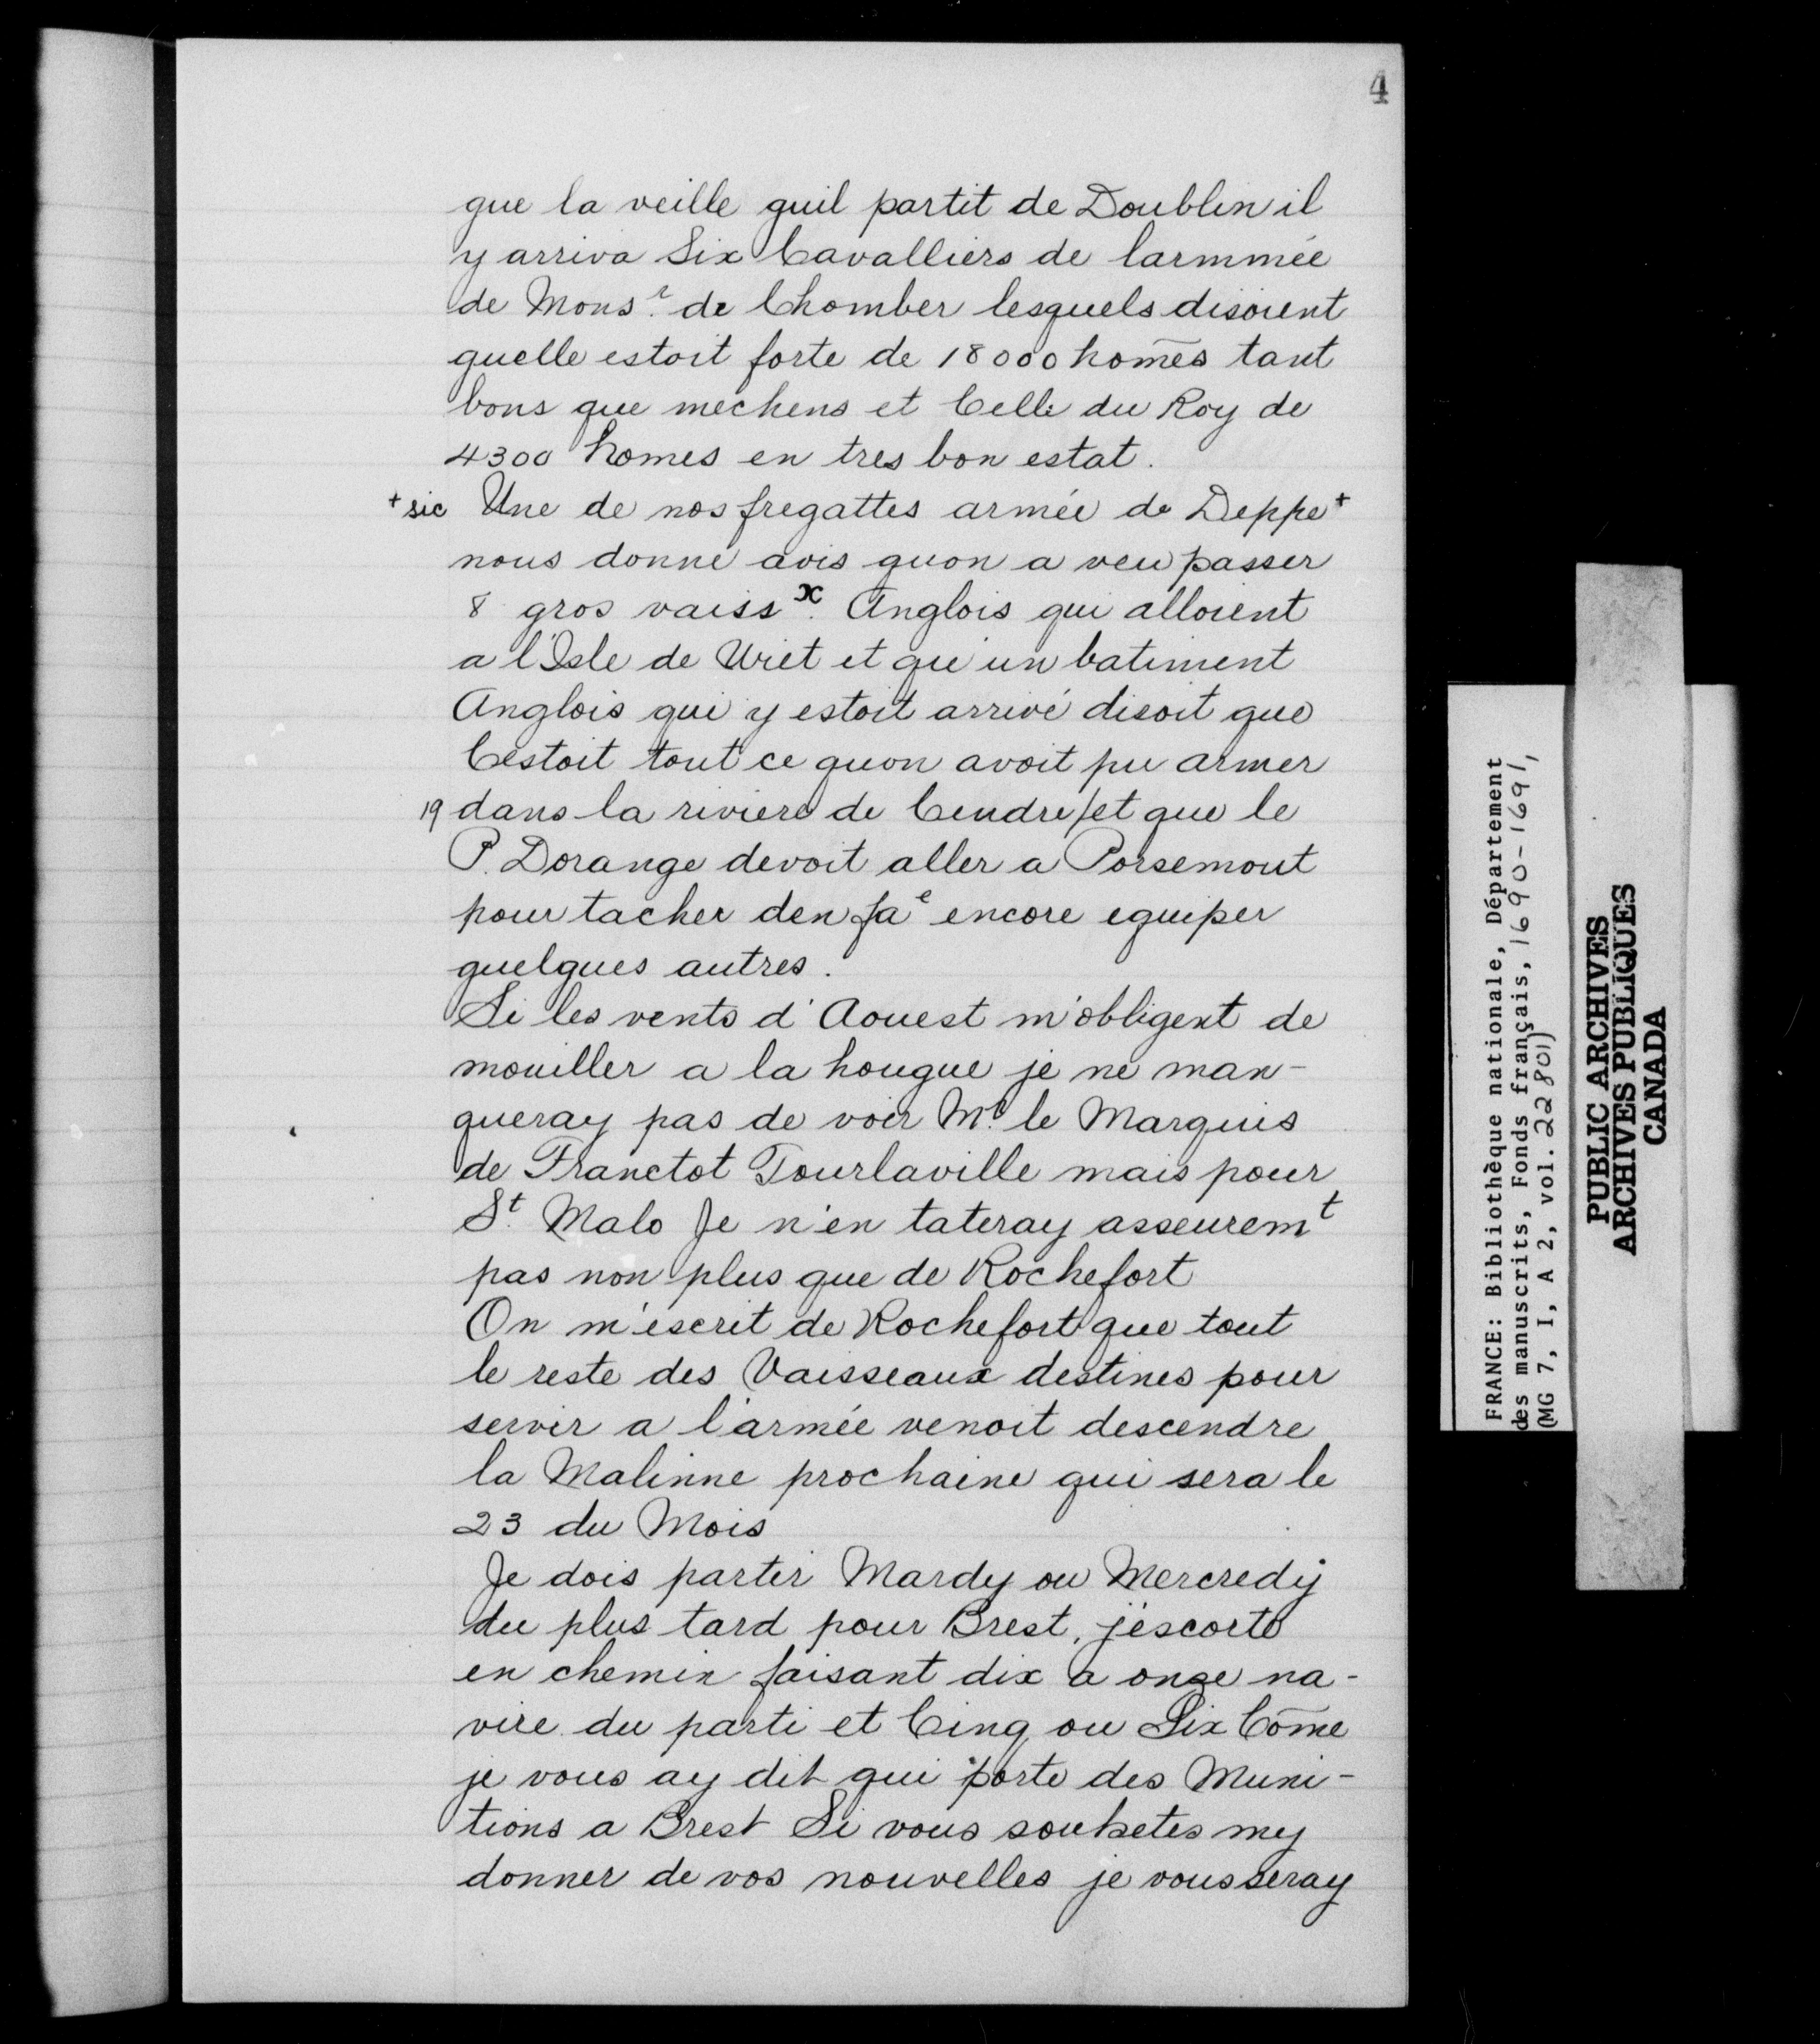 4
que la veille quil partit de Doublin il
y arriva Six Cavalliers de larmmée
de Monsr. de Chomber lesquels disoient
quelle estoit forte de 18000 hom̄es tant
bons que mechens et Celle du Roy de
4300 homes en tres bon estat.
+ sic Une de nos fregattes armée de Deppe +
nous donne avis quon a veu passer
8 gros vaissx. Anglois qui alloient
a l'Isle de Wiet et qu'un batiment
Anglois qui y estoit arrivé disoit que
C'estoit tout ce quon avoit pu armer
19 dans la riviere de Cendre/et que le
P. Dorange devoit aller a Porsemout
pour tacher den fae encore equiper
quelques autres.
Si les vents d'Aouest m'obligent de
mouiller a la hougue je ne man-
queray pas de voir Mr. le Marquis
de Franctot Tourlaville mais pour
St. Malo Je n'en tateray asseuremt
pas non plus que de Rochefort
On m'escrit de Rochefort que tout
le reste des Vaisseaux destines pour
servir a l'armée venoit descendre
la Malinne prochaine qui sera le
23 du Mois
Je dois partir Mardy ou Mercredy
du plus tard pour Brest, j'escorte
en chemin faisant dix a onze na-
vire du parti et Cinq ou Six Com̄e
je vous ay dit qui porte des Muni-
tions a Brest Si vous souhetes my
donner de vos nouvelles je vous seray
FRANCE: Bibliothèque nationale, Département
des manuscrits, Fonds français, 1690-1691,
(MG 7, I, A 2, vol. 22801)
PUBLIC ARCHIVES
ARCHIVES PUBLIQUES
CANADA